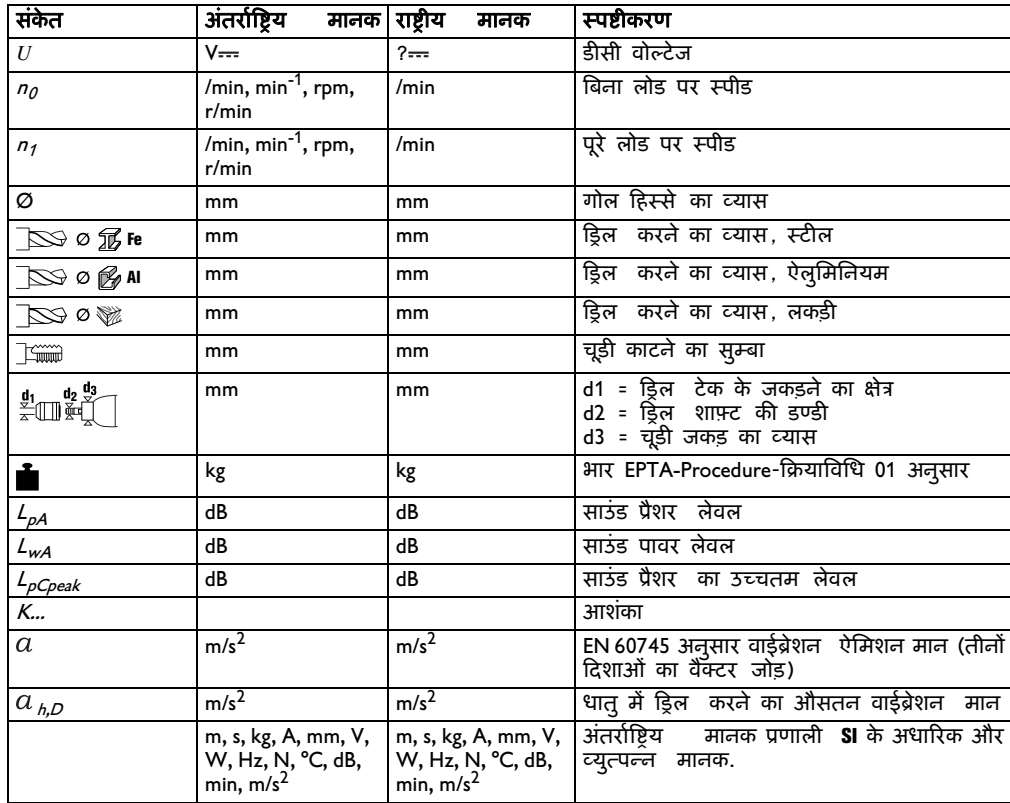 संकेत अंतर्राष्ट्रिय मानक राष्ट्रीय मानक स्पष्टीकरण
U V⎓ ?⎓ डीसी वोल्टेज
n0 /min, min-1, rpm, r/min /min बिना लोड पर स्पीड
n1 /min, min-1, rpm, r/min /min पूरे लोड पर स्पीड
Ø mm mm गोल हिस्से का व्यास
Ø Fe mm mm ड्रिल करने का व्यास, स्टील
Ø Al mm mm ड्रिल करने का व्यास, ऐलुमिनियम
Ø mm mm ड्रिल करने का व्यास, लकड़ी
mm mm चूड़ी काटने का सुम्बा
d1 d2 d3 mm mm d1 = ड्रिल टेक के जकड़ने का क्षेत्र
d2 = ड्रिल शाफ़्ट की डण्डी
d3 = चूड़ी जकड़ का व्यास
kg kg भार EPTA-Procedure-क्रियाविधि 01 अनुसार
LpA dB dB साउंड प्रैशर लेवल
LwA dB dB साउंड पावर लेवल
LpCpeak dB dB साउंड प्रैशर का उच्चतम लेवल
K... आशंका
a m/s2 m/s2 EN 60745 अनुसार वाईब्रेशन ऐमिशन मान (तीनों
दिशाओं का वैक्टर जोड़)
a h,D m/s2 m/s2 धातु में ड्रिल करने का औसतन वाईब्रेशन मान
m, s, kg, A, mm, V, W, Hz, N, °C, dB, min, m/s2 m, s, kg, A, mm, V, W, Hz, N, °C, dB, min, m/s2 अंतर्राष्ट्रिय मानक प्रणाली SI के अधारिक और
व्युत्पन्न मानक.